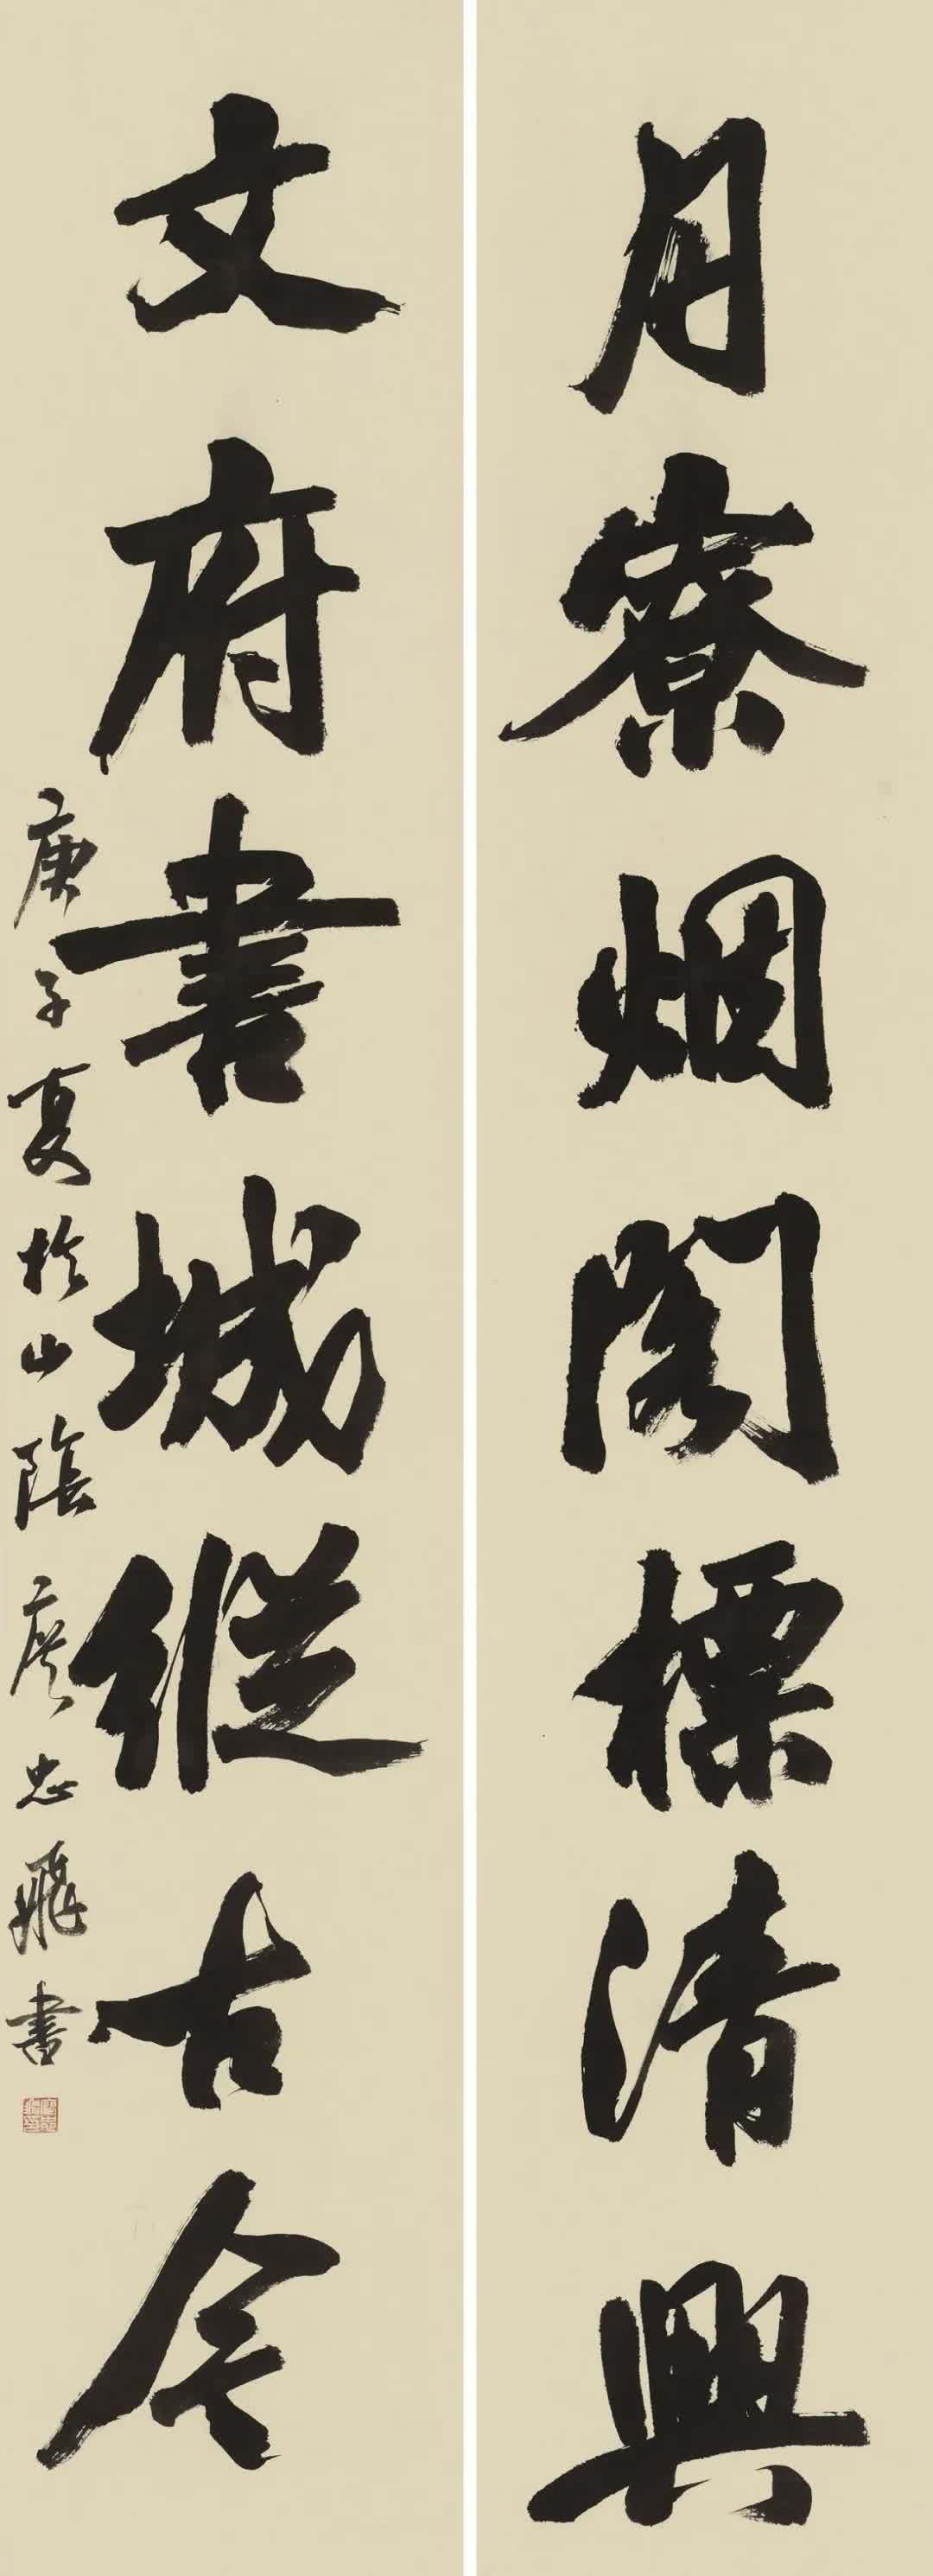 月寮烟阁標清興
文府書城縱古今
庚子夏於山陰廖忠飛書